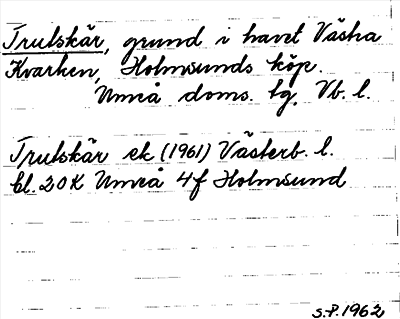 Trutskär, grund i havet Västra
Kvarken, Holmsunds köp.
Umeå doms. lg. Vb. l.
Trutskär ek (1961) Västerb. l.
bl. 20 K Umeå 4f Holmsund
S.P. 1962